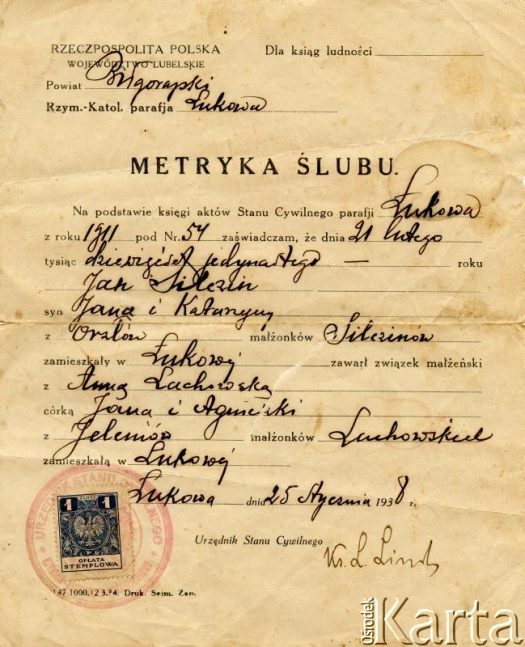 RZECZPOSPOLITA POLSKA
WOJEWÓDZTWO LUBELSKIE
Dla ksiąg ludności
Powiat Biłgorajski
Rzym.-Katol. parafja Łukowa
METRYKA ŚLUBU.
Na podstawie księgi aktów Stanu Cywilnego parafji Łukowa
z roku 1911 pod Nr. 54 zaświadczam, że dnia 21 lutego
tysiąc dziewięćset jedynastego — roku
Jan
syn Jana i Katarzyny
z małżonków
zamieszkały w Łukowej zawarł związek małżeński
z Anną Lachowską
córką Jana i Agnieszki
z Jeleniów małżonków Lachowskich
zamieszkałą w Łukowej
Łukowa dnia 25 stycznia 1938 r.
Urzędnik Stanu Cywilnego
Ks. L.
1 1
OPŁATA
STEMPLOWA
Druk. Sejm. Zam.
Ośrodek
Karta